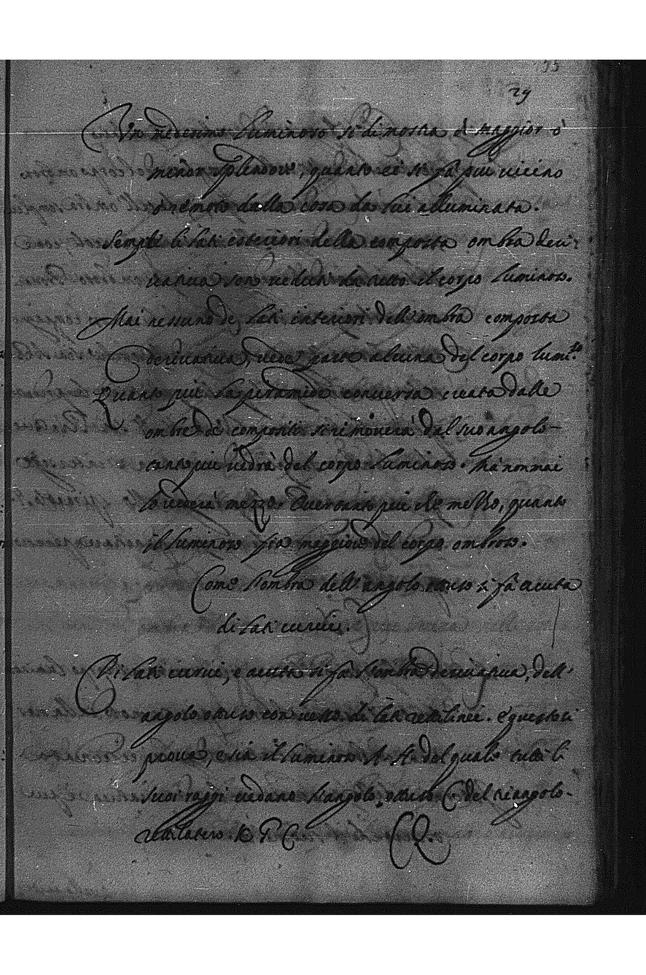 55
29
Un medesimo luminoso si dimostra di maggior o
menor splendore, quanto ei si fà piu vicino
o remoto dalla cosa da lui alluminata.
Sempre li lati esteriori della composta ombra deri-
vativa son veduti da tutto il corpo luminoso.
Mai nessuno de, lati interiori dell'ombra composta
derivativa, vede parte alcuna del corpo lumi.so
Quanto piu la piramide conversa creata dalle
ombre de compositi si rimoverà dal suo angolo
tanto piu vedrà del corpo luminoso. Ma non mai
lo vederà mezzo. Over tanto piu che mezzo, quanto
il luminoso fia maggiore del corpo ombroso.
Come l'ombra dell'angolo ottuso si fà acuta
di lati curui.
Di lati curui, e acuta si fa l'ombra derivativa, dell'
angolo ottuso contuso di lati rettilinei. e questo si
prova, e sia il luminoso A. H. del quale tutti li
suoi raggi vedano l'angolo, ottuso C. del triangolo
rettilatero. K T C